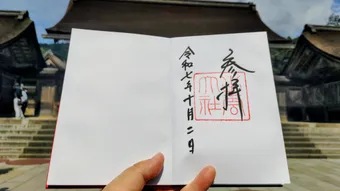 参拝
令和七年十月二日